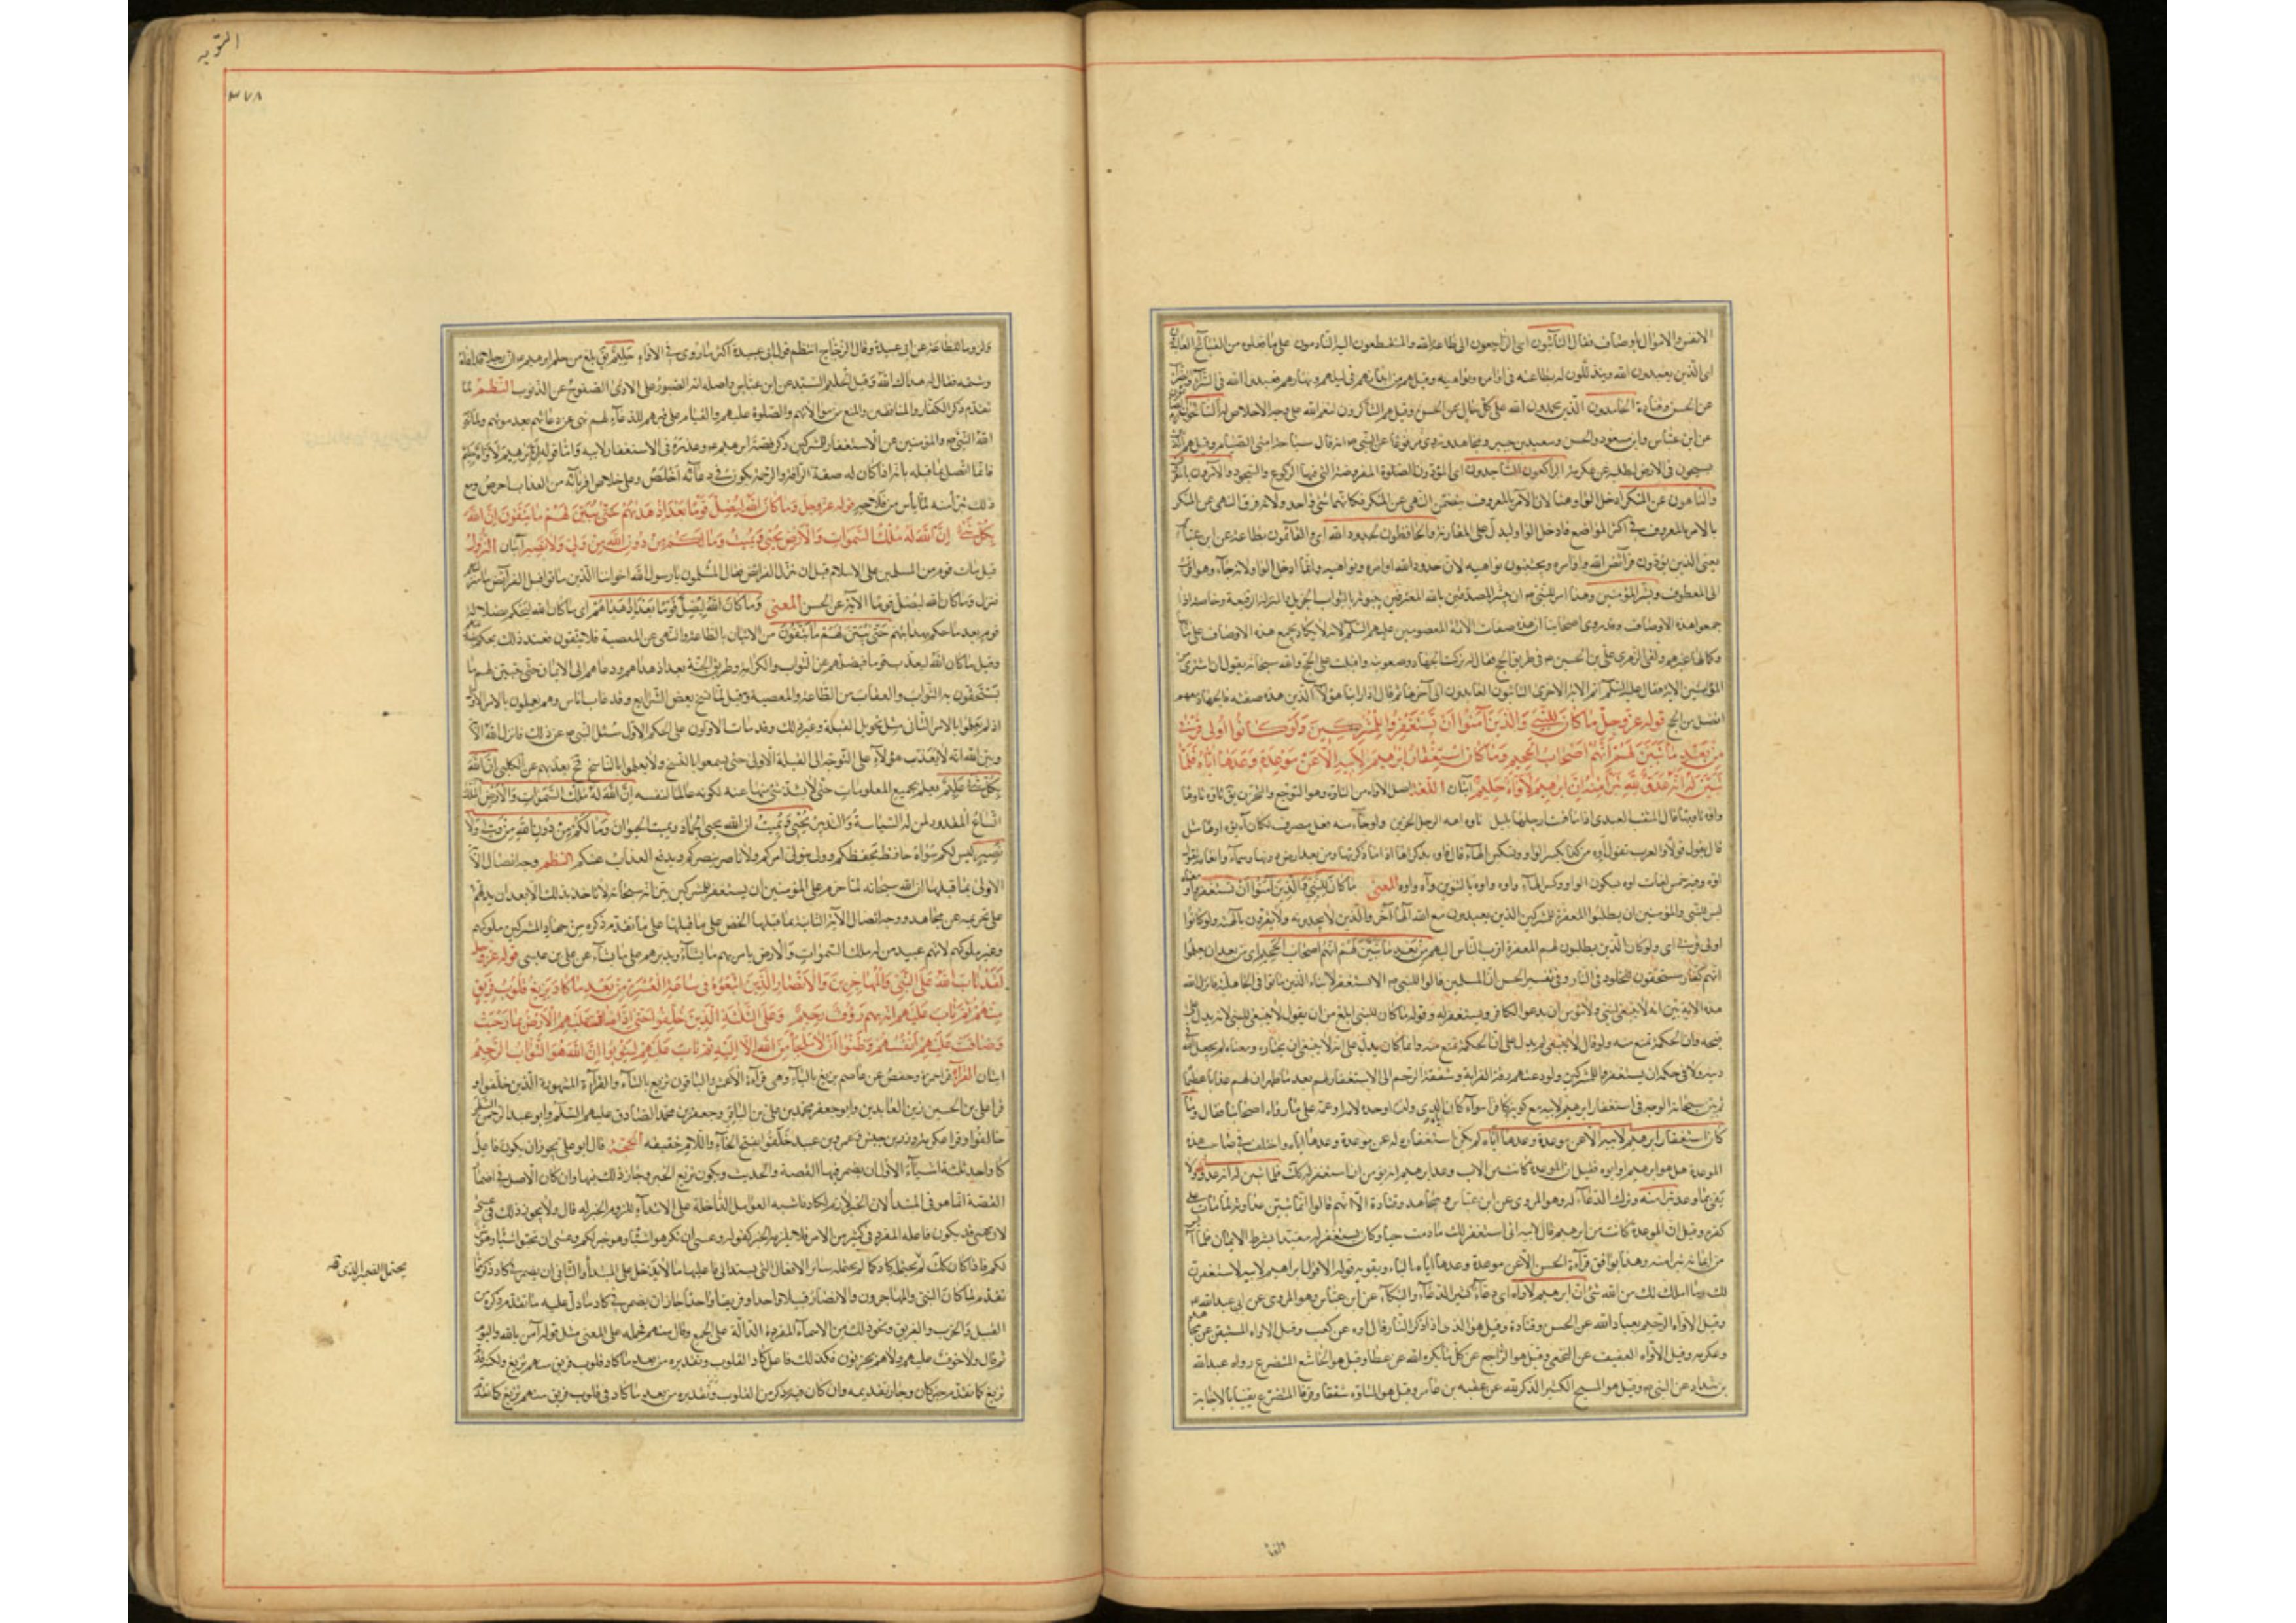 الانفس والاموال باوصاف فقال التائبون اى الراجعون الى طاعة الله والمنقطعون اليه النادمون على ما فعلوه من القبائح العابدون
اى الذين يعبدون الله ويتذللون له بطاعته فى اوامره ونواهيه وقيل هم من اخذ من ابدانهم فى ليلهم ونهارهم فعبدوا الله فى السراء والضراء
عن الحسن وقتادة الحامدون الذين يحمدون الله على كل حال عن الحسن وقيل هم الشاكرون لنعم الله على وجه الاخلاص له السائحون
عن ابن عباس وابن مسعود والحسن وسعيد بن جبير ومجاهد وروى مرفوعا عن النبى ص انه قال سياحة امتى الصيام وقيل هم الذين
يسيحون فى الارض لطلبة عن عكرمة الراكعون الساجدون اى المؤدون الصلوة المفروضة التى فيها الركوع والسجود والآمرون بالمعروف
والناهون عن المنكر ادخل الواو هنا لان الامر بالمعروف يتضمن النهى عن المنكر فكانهما شئ واحد ولانه قرن النهى عن المنكر
بالامر بالمعروف فى اكثر المواضع فادخل الواو ليدل على المقارنة والحافظون لحدود الله اى والقائمون بطاعة عن ابن عباس
يعنى الذين يؤدون فرائض الله واوامره ويجتنبون نواهيه لان حدود الله اوامره ونواهيه وانما ادخل الواو لانه جاء وهو اقرب
الى المعطوف وبشر المؤمنين وهذا امر للنبى ص ان يبشر المصدقين بالله المعترفين بنبوته بالثواب الجزيل والمنزلة الرفيعة وخاصة اذا
جمعوا هذه الاوصاف وقد روى اصحابنا ان هذه صفات الائمة المعصومين عليهم السلم لانه لا يكاد يجمع هذه الاوصاف على تمامها
وكمالها غيرهم ولقى الزهرى على بن الحسين ع فى طريق الحج فقال له تركت الجهاد وصعوبته واقبلت على الحج والله سبحانه يقول ان اشترى من
المؤمنين الاية فقال عليه السلم اتم الاية الاخرى التائبون العابدون الى آخرها ثم قال اذا راينا هؤلاء الذين هذه صفته فالجهاد معهم
افضل من الحج قوله عز وجل ما كان للنبى والذين آمنوا ان يستغفروا للمشركين ولو كانوا اولى قربى
من بعد ما تبين لهم انهم اصحاب الجحيم وما كان استغفار ابرهيم لابيه الا عن موعدة وعدها اياه فلما
تبين له انه عدو لله تبرأ منه ان ابرهيم لاواه حليم آيتان اللغة اصل الاواه من التاوه وهو التوجع والتحزن يق تاوه تاوها
واوه تاويها قال المثقب العبدى اذا ما قمت ارحلها بليل تاوه اهة الرجل الحزين ولو جاء منه فعل مصرف لكان آه يؤه اوها مثل
قال يقول قولا والعرب تقول اوه من كذا بكسر الواو وتسكين الهاء قال فاوه بذكراها اذا ما ذكرتها ومن بعد ارض دونها وسماء والعامة تقول
اوه وفيه خمس لغات اوه بسكون الواو وكسر الهاء واوه واوه بالتنوين وآه واوه المعنى ما كان للنبى والذين آمنوا ان يستغفروا معناه
ليس للنبى والمؤمنين ان يطلبوا المغفرة للمشركين الذين يعبدون مع الله الها آخر والذين لا يوحدونه ولا يقرون بالهيته ولو كانوا
اولى قربى اى ولو كان الذين يطلبون لهم المغفرة اقرب الناس اليهم من بعد ما تبين لهم انهم اصحاب الجحيم اى من بعد ان يعلموا
انهم كفار مستحقون للخلود فى النار وفى تفسير الحسن ان المسلمين قالوا للنبى ص الا تستغفر لآبائنا الذين ماتوا فى الجاهلية فانزل الله
هذه الاية وبين انه لا ينبغى لنبى ولا مؤمن ان يدعو لكافر ويستغفر له وقوله ما كان للنبى ابلغ من ان يقول لا ينبغى للنبى لانه يدل على
قبحه وان الحكمة تمنع منه ولو قال لا ينبغى لم يدل على ان الحكمة تمنع منه وانما كان يدل على انه لا ينبغى ان يختاره ومعناه لم يجعل الله فى
دينه ولا فى حكمه ان يستغفروا للمشركين ولو دعتهم رقة القرابة وشفقة الرحم الى الاستغفار لهم بعد ما ظهر ان لهم عذابا عظيما
ثم بين سبحانه الوجه فى استغفار ابرهيم لابيه مع كونه كافرا سواء كان ابوه الذى ولده او جده لامه او عمه على ما رواه اصحابنا فقال وما
كان استغفار ابرهيم لابيه الا عن موعدة وعدها اياه لم يكن استغفاره له عن موعدة وعدها اياه واختلف فى صاحب هذه
الموعدة هل هو ابرهيم او ابوه فقيل ان الموعدة كانت من الاب وعد بها ابرهيم انه يؤمن ان استغفر له كك فلما تبين له انه عدو لله ولا
يفى بما وعد تبرأ منه وترك الدعاء له وهو المروى عن ابن عباس ومجاهد وقتادة الا انهم قالوا انما تبين عداوته لما مات على
كفره وقيل ان الموعدة كانت من ابرهيم قال لابيه انى استغفر لك ما دمت حيا وكان يستغفر له مقيدا بشرط الايمان فلما ايس
من ايمانه تبرا منه وهذا يوافق قراءة الحسن الا عن موعدة وعدها اباه بالباء ويقويه قوله الا قول ابراهيم لابيه لاستغفرن
لك وما املك لك من الله شئ ان ابرهيم لاواه اى دعاء كثير الدعاء والبكاء عن ابن عباس وهو المروى عن ابى عبد الله ع
وقيل الاواه الرحيم بعباد الله عن الحسن وقتادة وقيل هو الذى اذا ذكر النار قال اوه عن كعب وقيل الاواه الموقن عن مجاهد
وعكرمة وقيل الاواه العفيف عن النخعى وقيل هو الراجع عن كل ما يكره الله عن عطا وقيل هو الخاشع المتضرع رواه عبد الله
بن شداد عن النبى ص وقيل هو المسبح الكثير الذكر لله عن عقبه بن عامر وقيل هو المتاوه شفقا وفرقا المتضرع يقينا بالاجابة
التوبه
٣٧٨
ولزوما للطاعة عن ابى عبيدة وقال الزجاج انتظم قول ابى عبيدة اكثر ما روى فى الاواه حليم يق بلغ من حلم ابرهيم ع ان رجلا قد اذاه
وشتمه فقال له هداك الله وقيل الحليم السيد عن ابن عباس واصله انه الصبور على الاذى الصفوح عن الذنوب النظم لما
تقدم ذكر الكفار والمنافقين والمنع من موالاتهم والصلوة عليهم والقيام على قبرهم للدعاء لهم نهى عن دعائهم بعد موتهم ولما ذكر
الله النبى ص والمؤمنين عن الاستغفار للمشركين ذكر قصة ابرهيم ع وعذره فى الاستغفار لابيه واما قوله ان ابرهيم لاواه حليم
فانما اتصل بما قبله بانه اذا كان له صفة الرافة والرحمة يكون فى دعائه اخلص وعلى خلاص اقربائه من العذاب احرص ومع
ذلك تبرأ منه لما يأس من فلاحه قوله عز وجل وما كان الله ليضل قوما بعد اذ هديهم حتى يبين لهم ما يتقون ان الله
بكل شئ عليم ان الله له ملك السموات والارض يحيى ويميت وما لكم من دون الله من ولى ولا نصير آيتان النزول
قيل مات قوم من المسلمين على الاسلام قبل ان تنزل الفرائض فقال المسلمون يا رسول الله اخواننا الذين ماتوا قبل الفرائض ما منزلتهم
فنزل وما كان الله ليضل قوما الاية عن الحسن المعنى وما كان الله ليضل قوما بعد اذ هداهم اى ما كان الله ليحكم بضلالة
قوم بعد ما حكم بهدايتهم حتى يبين لهم ما يتقون من الاتيان بالطاعة والنهى عن المعصية فلا يتقون فعند ذلك يحكم بضلالتهم
وقيل ما كان الله ليعذب قوما فيضلهم عن الثواب والكرامة وطريق الجنة بعد اذ هداهم ودعاهم الى الايمان حتى يبين لهم ما
يستحقون به الثواب والعقاب من الطاعة والمعصية وقيل لما نسخ بعض الشرايع وقد غاب اناس وهم يعملون بالامر الاول
اذ لم يعلموا بالامر الثانى مثل تحويل القبلة وغير ذلك وقد مات الاولون على الحكم الاول سئل النبى ص عن ذلك فانزل الله الآية
وبين الله انه لا يعذب هؤلاء على التوجه الى القبلة الاولى حتى يسمعوا بالنسخ ولا يعملوا بالناسخ فح يعذبهم عن الكلبى ان الله
بكل شئ عليم يعلم بجميع المعلومات حتى لا يشذ شئ منها عنه لكونه عالما لنفسه ان الله له ملك السموات والارض الملك
اتساع المقدور لمن له السياسة والتدبير يحيى ويميت ان الله يحيى الجماد ويميت الحيوان وما لكم من دون الله من ولى ولا
نصير ليس لكم سواه حافظ يحفظكم وولى يتولى امركم ولا ناصر ينصركم ويدفع العذاب عنكم النظم وجه اتصال الآية
الاولى بما قبلها ان الله سبحانه لما حرم على المؤمنين ان يستغفروا للمشركين بين انه سبحانه لا ياخذ بذلك الا بعد ان يدلهم
على تحريمه عن مجاهد ووجه اتصال الآية الثانية بما قبلها الحض على ما قبلها على ما تقدم ذكره من جهاد المشركين ملوكهم
وغير ملوكهم لانهم عبيد من له ملك السموات والارض يامر بهم ما يشاء ويدبرهم على ما يشاء عن على بن عيسى قوله عز وجل
لقد تاب الله على النبى والمهاجرين والانصار الذين اتبعوه فى ساعة العسرة من بعد ما كاد يزيغ قلوب فريق
منهم ثم تاب عليهم انه بهم رؤف رحيم وعلى الثلثة الذين خلفوا حتى اذا ضاقت عليهم الارض بما رحبت
وضاقت عليهم انفسهم وظنوا ان لا ملجأ من الله الا اليه ثم تاب عليهم ليتوبوا ان الله هو التواب الرحيم
ايتان القراءة قرا حمزة وحفص عن عاصم يزيغ بالياء وهى قراءة الاعمش والباقون تزيغ بالتاء والقراءة المشهورة الذين خلفوا و
قرا على بن الحسين زين العابدين وابو جعفر محمد بن على الباقر وجعفر بن محمد الصادق عليهم السلم وابو عبد الرحمن السلمى
خالفوا وقرا عكرمة وزر بن حبيش وعمرو بن عبيد خلفوا بفتح الخاء واللام خفيفة الحجة قال ابو على يجوز ان يكون فاعل
كاد احد ثلثة اشياء الاول ان يضمر فيها القصة والحديث ويكون تزيغ الخبر وجاز ذلك فيها وان كان الاصل فى اضمار
القصة انما هو فى المبتدأ لان الخبر لازم لكاد فاشبه العوامل الداخلة على الابتداء للزوم الخبر له قال ولا يجوز ذلك فى عسى
لان عسى قد يكون فاعله المفرد فى كثير من الامر فلا يلزمه الخبر كقوله وعسى ان تكرهوا شيئا وهو خير لكم وعسى ان تحبوا شيئا وهو شر
لكم فاذا كان كك لم يحتمل كاد كما لم يحتمله سائر الافعال التى يسند الى فاعليها مما لا يدخل على المبتدأ والثانى ان يضمر فى كاد ذكر مما
تقدم لما كان النبى والمهاجرون والانصار قبيلا واحدا وفريقا واحدا جاز ان يضمر فى كاد ما دل عليه ما تقدم ذكره من
القبيل والحزب والفريق ونحو ذلك من الاسماء المفردة الدالة على الجمع وقال منهم فحمله على المعنى مثل قوله آمن بالله واليوم
ثم قال ولا خوف عليهم ولا هم يحزنون فكذلك فاعل كاد القلوب وتقديره من بعد ما كاد قلوب فريق منهم تزيغ ولكنه قدم
تزيغ كما تقدم خبر كان وجاز تقديمه وان كان فيه ذكر من القلوب وتقديره من بعد ما كاد فى قلوب فريق منهم تزيغ كما تقدم
يحتمل الضمير الذى فيه